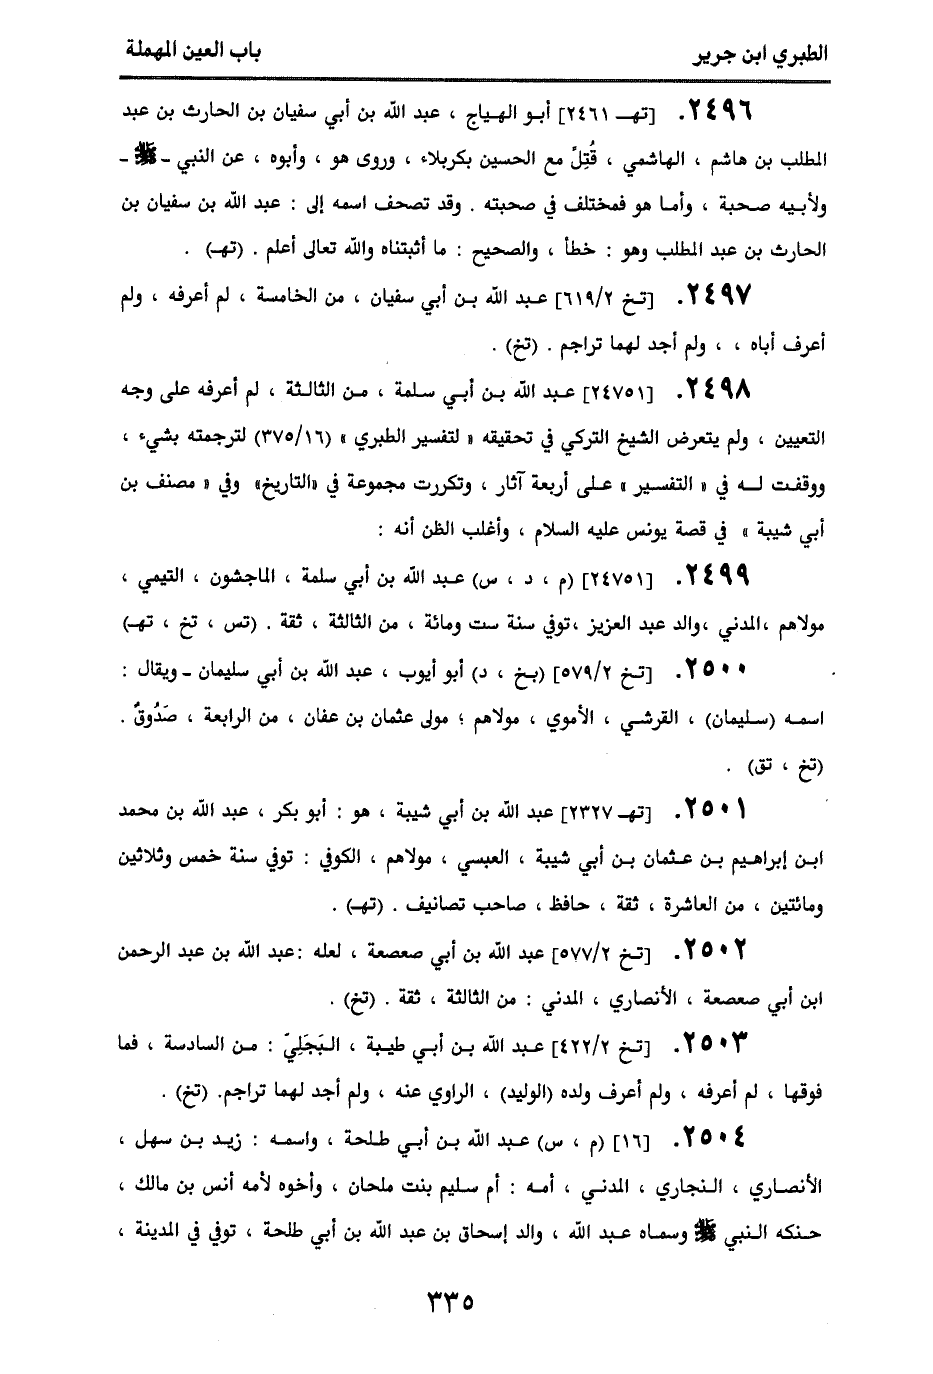 الطبري ابن جرير
باب العين المهملة
٢٤٩٦. [تهـ ٢٤٦١] أبـو الهـياج ، عبد الله بن أبي سفيان بن الحارث بن عبد
المطلب بن هاشم ، الهاشمي ، قُتِلَ مع الحسين بكربلاء ، وروى هو ، وأبوه ، عن النبي ـ ﷺ ـ
ولأبـيه صـحبة ، وأمـا هو فمختلف في صحبته . وقد تصحف اسمه إلى : عبد الله بن سفيان بن
الحارث بن عبد المطلب وهو : خطأ ، والصحيح : ما أثبتناه والله تعالى أعلم . (تهـ) .
٢٤٩٧. [تـخ ٦١٩/٢] عـبد الله بـن أبي سفيان ، من الخامسة ، لم أعرفه ، ولم
أعرف أباه ، ، ولم أجد لهما تراجم . (تخ) .
٢٤٩٨. [٢٤٧٥١] عـبد الله بـن أبـي سـلمة ، مـن الثالـثة ، لم أعرفه على وجه
التعيين ، ولم يتعرض الشيخ التركي في تحقيقه « لتفسير الطبري » (٣٧٥/١٦) لترجمته بشيء ،
ووقفـت لـــه في « التفسـير » عـلى أربعة آثار ، وتكررت مجموعة في «التاريخ» وفي « مصنف بن
أبي شيبة » في قصة يونس عليه السلام ، وأغلب الظن أنه :
٢٤٩٩. [٢٤٧٥١] (م ، د ، س) عـبد الله بن أبي سلمة ، الماجشون ، التيمي ،
مولاهم ،المدني ،والد عبد العزيز ،توفي سنة ست ومائة ، من الثالثة ، ثقة . (تس ، تخ ، تهـ)
٢٥٠٠. [تـخ ٥٧٩/٢] (بـخ ، د) أبو أيوب ، عبد الله بن أبي سليمان ـ ويقال :
اسمـه (سـليمان) ، القرشـي ، الأموي ، مولاهم ؛ مولى عثمان بن عفان ، من الرابعة ، صَدُوقٌ .
(تخ ، تق) .
٢٥٠١. [تهـ ٢٣٢٧] عبد الله بن أبي شيبة ، هو : أبو بكر ، عبد الله بن محمد
ابـن إبراهـيم بـن عـثمان بـن أبي شيبة ، العبسي ، مولاهم ، الكوفي : توفي سنة خمس وثلاثين
ومائتين ، من العاشرة ، ثقة ، حافظ ، صاحب تصانيف . (تهـ) .
٢٥٠٢. [تـخ ٥٧٧/٢] عبد الله بن أبي صعصعة ، لعله :عبد الله بن عبد الرحمن
ابن أبي صعصعة ، الأنصاري ، المدني : من الثالثة ، ثقة . (تخ) .
٢٥٠٣. [تـخ ٤٢٢/٢] عـبد الله بـن أبـي طيـبة ، الـبَجَلِيّ : مـن السادسة ، فما
فوقها ، لم أعرفه ، ولم أعرف ولده (الوليد) ، الراوي عنه ، ولم أجد لهما تراجم. (تخ) .
٢٥٠٤. [١٦] (م ، س) عـبد الله بـن أبـي طـلحة ، واسمـه : زيـد بـن سهل ،
الأنصـاري ، الـنجاري ، المدنـي ، أمـه : أم سليم بنت ملحان ، وأخوه لأمه أنس بن مالك ،
حـنكه الـنبي ﷺ وسمـاه عـبد الله ، والد إسحاق بن عبد الله بن أبي طلحة ، توفي في المدينة ،
٣٣٥